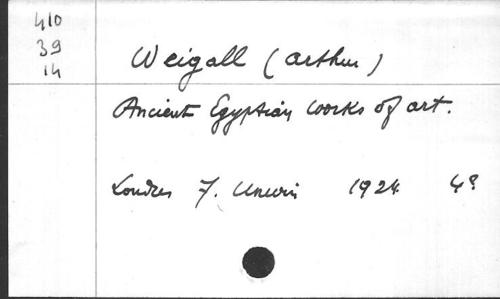 410
39
14
Weigall (Arthur)
Ancient Egyptian works of art.
Londres F. Unwin 1924 4º